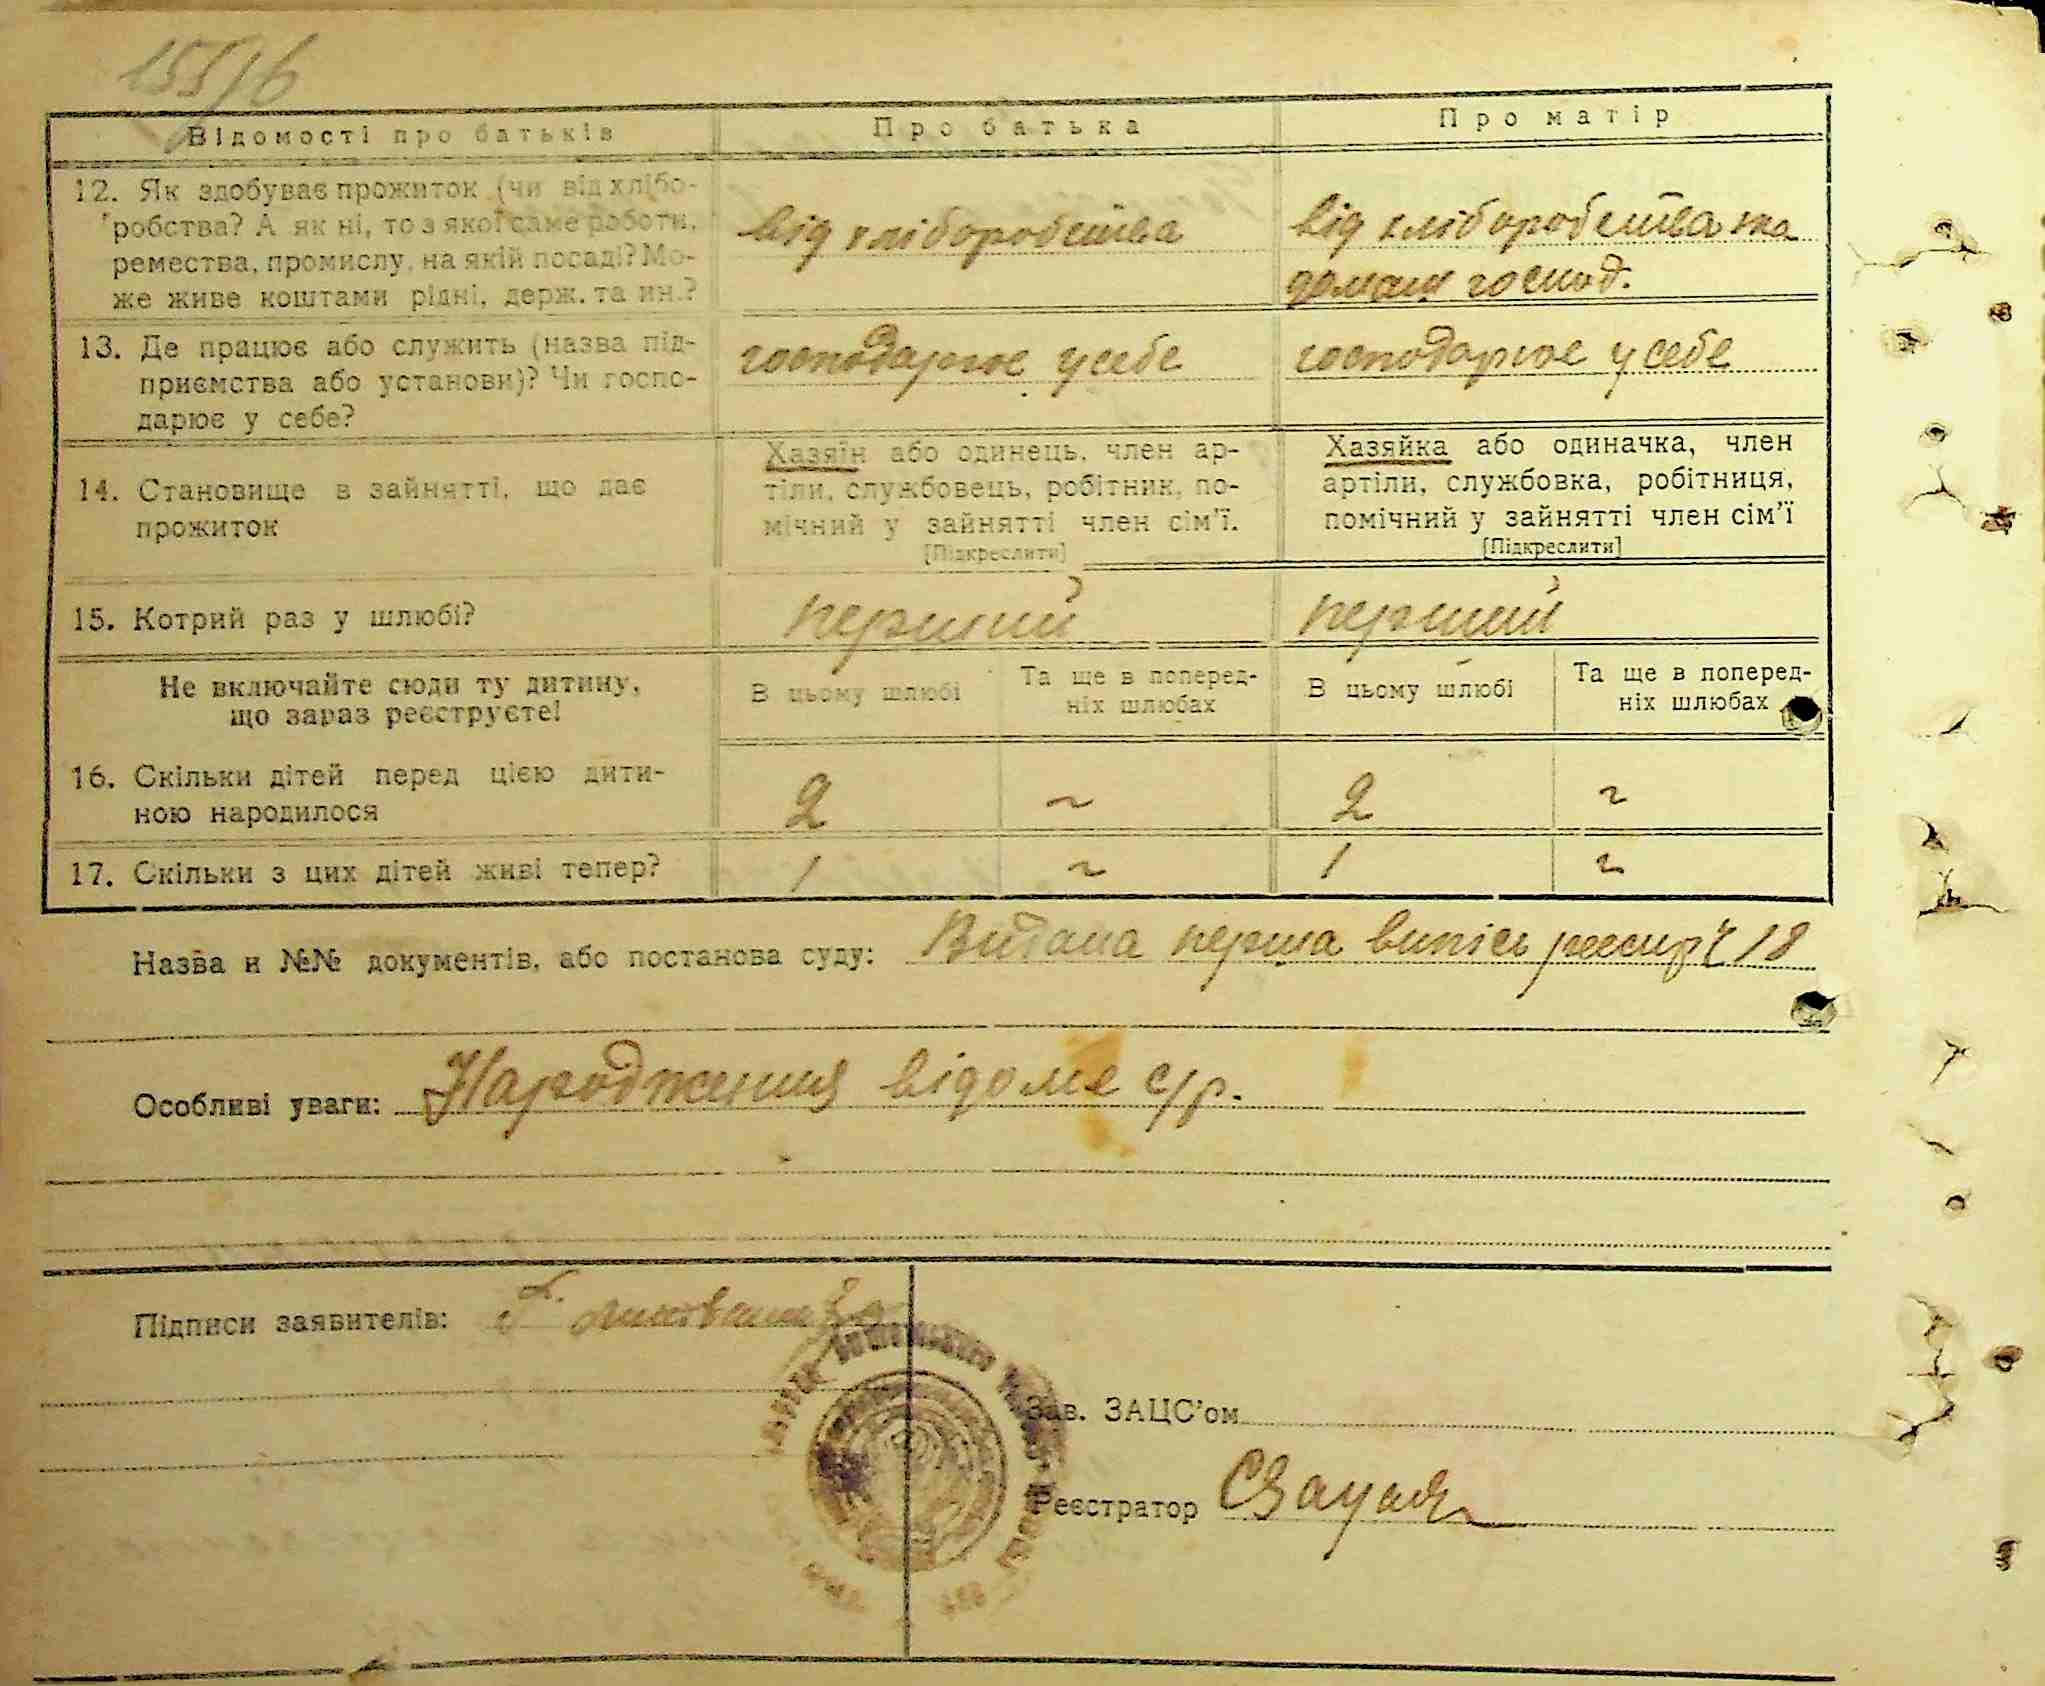 155/6
Відомості про батьків
Про батька
Про матір
12. Як здобуває прожиток (чи від хлібо-
робства? А як ні, то з якої саме роботи,
ремества, промислу, на якій посаді? Мо-
же живе коштами рідні, держ. та ин.?
від хліборобства
від хліборобства та
домаш госпад.
13. Де працює або служить (назва під-
приємства або установи)? Чи госпо-
дарює у себе?
господарює у себе
господарює у себе
14. Становище в зайнятті, що дає
прожиток
Хазяїн або одинець, член ар-
тіли, службовець, робітник, по-
мічний у зайнятті член сім'ї.
[Підкреслити]
Хазяйка або одиначка, член
артіли, службовка, робітниця,
помічний у зайнятті член сім'ї
[Підкреслити]
15. Котрий раз у шлюбі?
перший
перший
Не включайте сюди ту дитину,
що зараз реєструєте!
В цьому шлюбі
Та ще в поперед-
ніх шлюбах
В цьому шлюбі
Та ще в поперед-
ніх шлюбах
16. Скільки дітей перед цією дити-
ною народилося
2
~
2
~
17. Скільки з цих дітей живі тепер?
1
~
1
~
Назва и №№ документів, або постанова суду: Видана перша випісь реєстр 18
Особливі уваги: Народження відоме с/р.
Підписи заявителів:
Зав. ЗАЦС'ом
Реєстратор